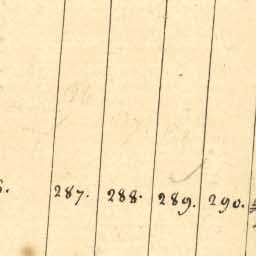 287. 288. 289. 290.